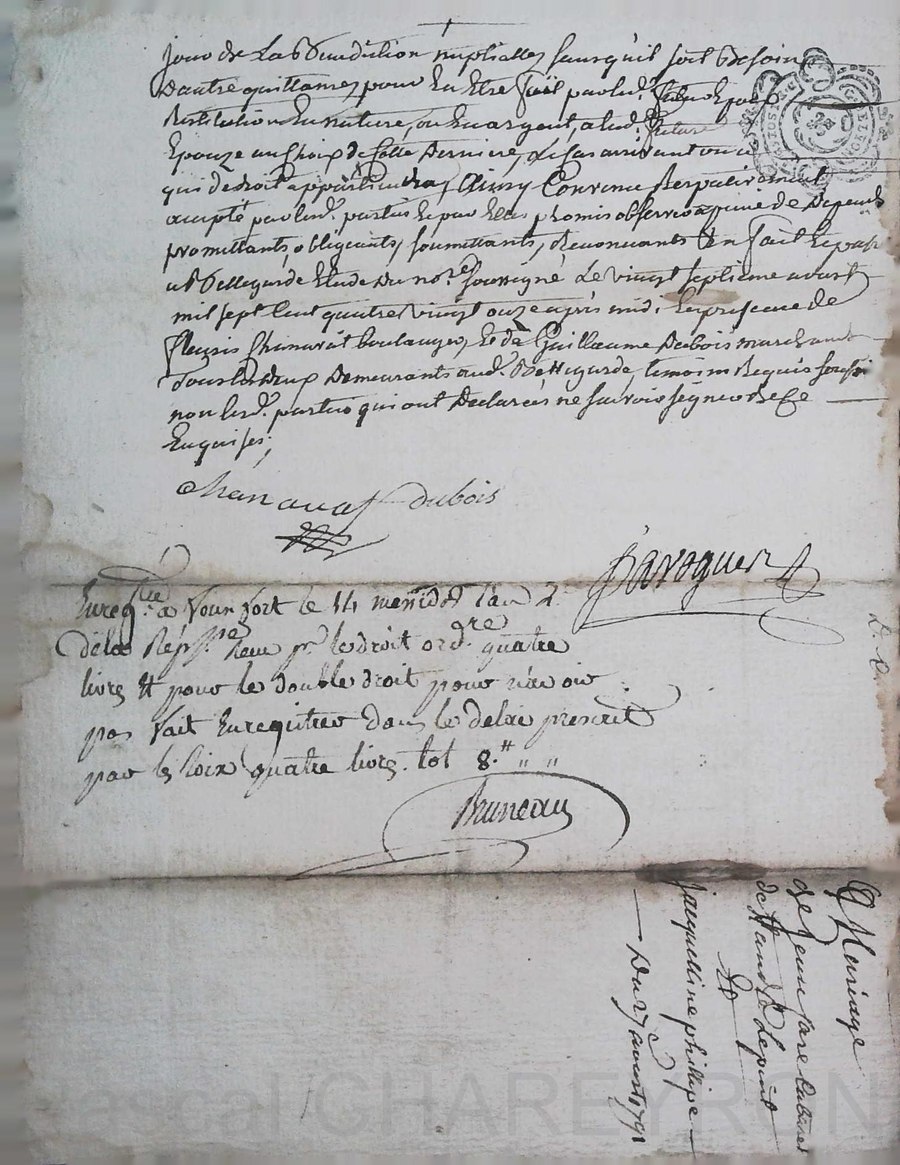 jour de La Benediction nuptialle, sans qu'il soit Besoin
dautre quittances pour En Etre fait par lud. futur Epoux
Restitution En nature, ou En argent, a lad. future
Epouze au choix de Cette Derniere, Le Cas arrivant ou a
qui de droit appartiendra, Ainsy Convenu Respectivement
accepté par lesd. parties Et par Elles promis observer a peine de Depends
promettants, obligeants, soumettants, Renoncants &a fait Et passé
a Bellegarde Etude du nore soussigné Le vingt septieme aoust
mil sept Cent quatre vingt onze après midi. En presence de
boulanger, Et de Guillaume Dubois marchand
Tous les deux Demeurants aud. Bellegarde, temoins Requis soussi
non lesd. parties qui ont Declarées ne savoir signer de Ce
Enquises,
Chanavat dubois
Enregtré a le 14 messidor l'an 2e
de la Repque Reçu pr le droit ordre quatre
livres Et pour le double droit pour n'avoir
pas fait Enregitrer dans le delai prescrit
par les loix quatre livres. tot 8.# " "
Bruneau
Mariage
de Jean
de
&
jacquelline philippe
Du 27 aoust 1791
Pascal CHAREYRON